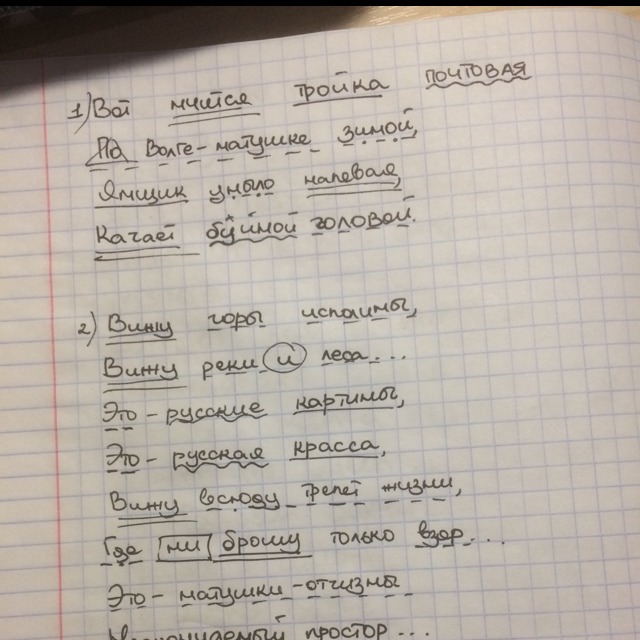 1) Вот мчится тройка почтовая
На Волге-матушке зимой,
Ямщик уныло напевая,
Качает буйной головой.
2) Вижу горы исполины,
Вижу реки и леса...
Это - русские картины,
Это - русская красса,
Вижу всюду трепет жизни,
Где ни брошу только взор...
Это - матушки-отчизны
простор...